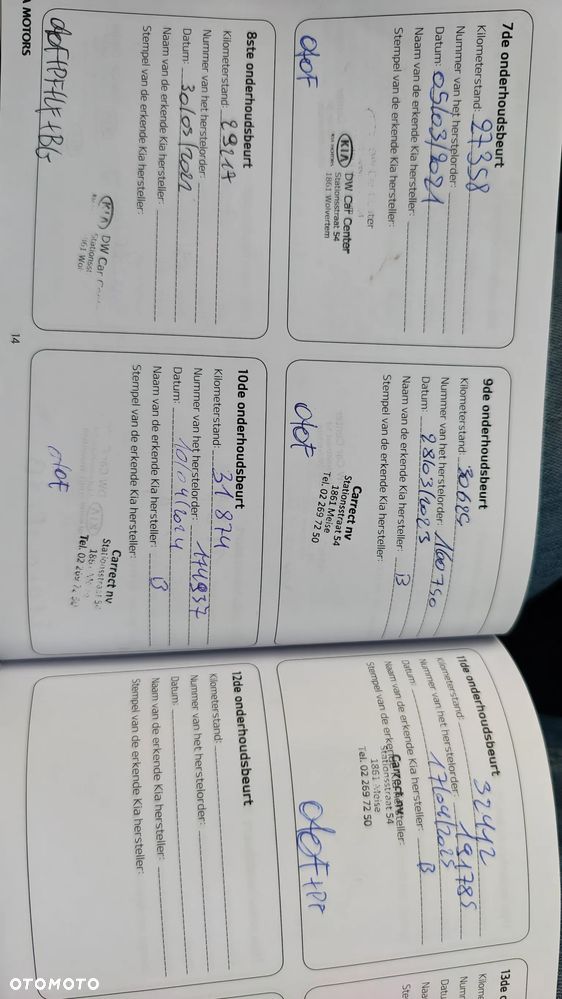 7de onderhoudsbeurt
Kilometerstand: 27358
Nummer van het herstelorder:
Datum: 05/03/2021
Naam van de erkende Kia hersteller:
Stempel van de erkende Kia hersteller:
KIA DW Car Center
Stationsstraat 54
1861 Wolvertem
8ste onderhoudsbeurt
Kilometerstand: 29217
Nummer van het herstelorder:
Datum: 30/03/2022
Naam van de erkende Kia hersteller:
Stempel van de erkende Kia hersteller:
KIA DW Car
Stationsst
1861 Wol
A MOTORS
14
9de onderhoudsbeurt
Kilometerstand: 30625
Nummer van het herstelorder: 160750
Datum: 28/03/2023
Naam van de erkende Kia hersteller: B
Stempel van de erkende Kia hersteller:
Carrect nv
Stationsstraat 54
1861 Meise
Tel. 02 269 72 50
10de onderhoudsbeurt
Kilometerstand: 31874
Nummer van het herstelorder: 174937
Datum: 10/04/2024
Naam van de erkende Kia hersteller: B
Stempel van de erkende Kia hersteller:
Carrect nv
Stationsstraat 54
1861 Meise
Tel. 02 269 72 50
11de onderhoudsbeurt
Kilometerstand: 32412
Nummer van het herstelorder: 191785
Datum: 17/04/2025
Naam van de erkende Kia hersteller: B
Stempel van de erkende Kia hersteller:
Carrect nv
Stationsstraat 54
1861 Meise
Tel. 02 269 72 50
12de onderhoudsbeurt
Kilometerstand:
Nummer van het herstelorder:
Datum:
Naam van de erkende Kia hersteller:
Stempel van de erkende Kia hersteller:
13de
Kilom
Numm
Datu
Naa
Ste
OTOMOTO